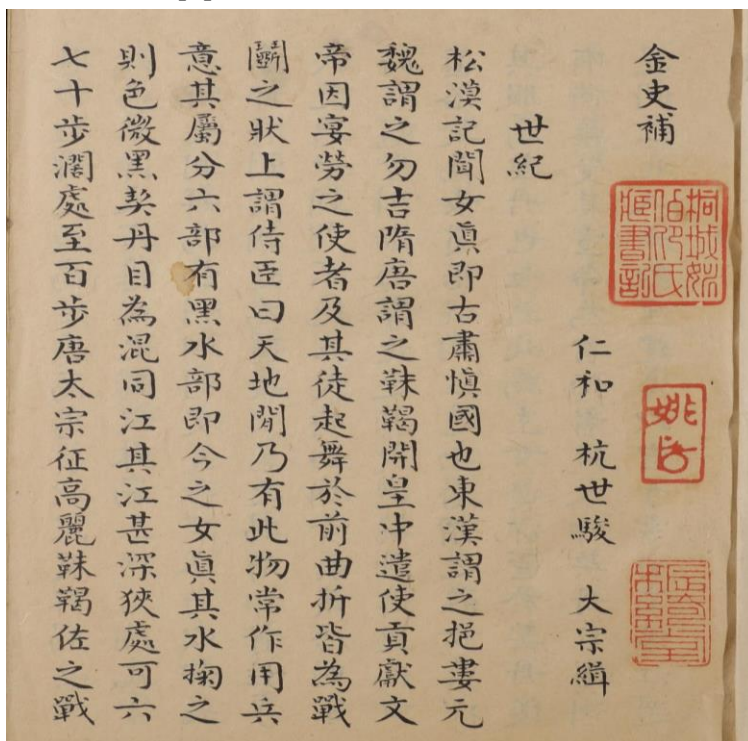 金史補
仁和 杭世駿 大宗緝
世紀
松漠記聞女眞即古肅愼國也東漢謂之挹婁元
魏謂之勿吉隋唐謂之靺鞨開皇中遣使貢獻文
帝因宴勞之使者及其徒起舞於前曲折皆為戰
鬭之狀上謂侍臣曰天地閒乃有此物常作用兵
意其屬分六部有黑水部即今之女眞其水掬之
則色微黑契丹目為混同江其江甚深狹處可六
七十步濶處至百步唐太宗征高麗靺鞨佐之戰
桐城姚
伯卬氏
藏書記
姚氏